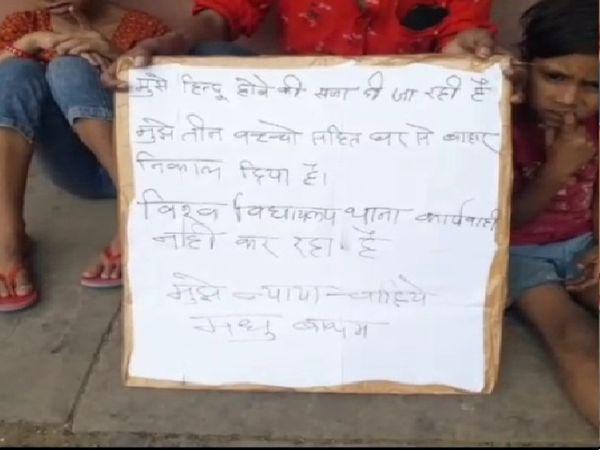 मुझे हिन्दू होने की सजा दी जा रही है
मुझे तीन बच्चो सहित घर से बाहर
निकाल दिया है।
विश्व विधालय थाना कार्यवाही
नही कर रहा है
मुझे न्याय चाहिये
मधु बाथम